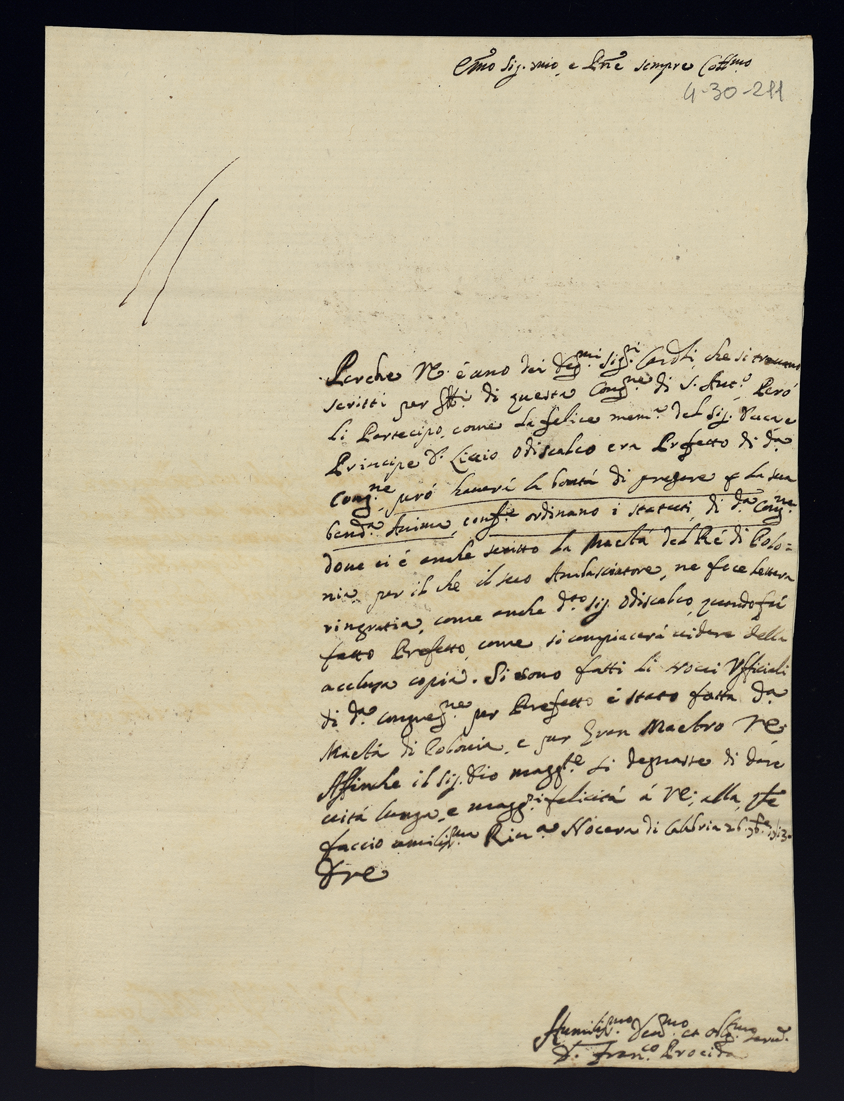 Emo Sig. mio, e Pne sempre Coll.mo
4-30-211
Perche VE. é uno dei Deg.mi Sig.ri Card.li, che si trovano
scritti per ffli di questa Cong.ne di S. Ant.o, Peró
li Partecipo, come la felice mem.a del Sig. Duca, e
Principe D. Livio Odiscalco era Prefetto di d.a
Cong.ne, peró haverá la bontá di pregare p la sua
bend.a Anima, conf.e ordinano i statuti di d.a Cong.ne
dove ci é anche scritto la Maestá del Ré di Polo=
nia, per il che il suo Ambasciatore, ne fece lettera
ringratia, come anche d.to Sig. Odiscalco, quando fú
fatto Prefetto, come si compiacerá videre della
acclusa copia. Si sono fatti li novi Ufficiali
di d.a Congreg.ne per Prefetto é stato fatta d.a
Maestá di Polonia, e per Gran Maestro VE.
Affinche il Sig. Dio magg.te si degnasse di dare
vitá lunga, e magg.ri felicitá á VE; alla q.le
faccio umiliss.ma Riv.a Nocera di Calabria 26 7bre 1713
DVE
Humiliss.mo Dev.mo et obl.mo serv.
D. Fran.co Procida